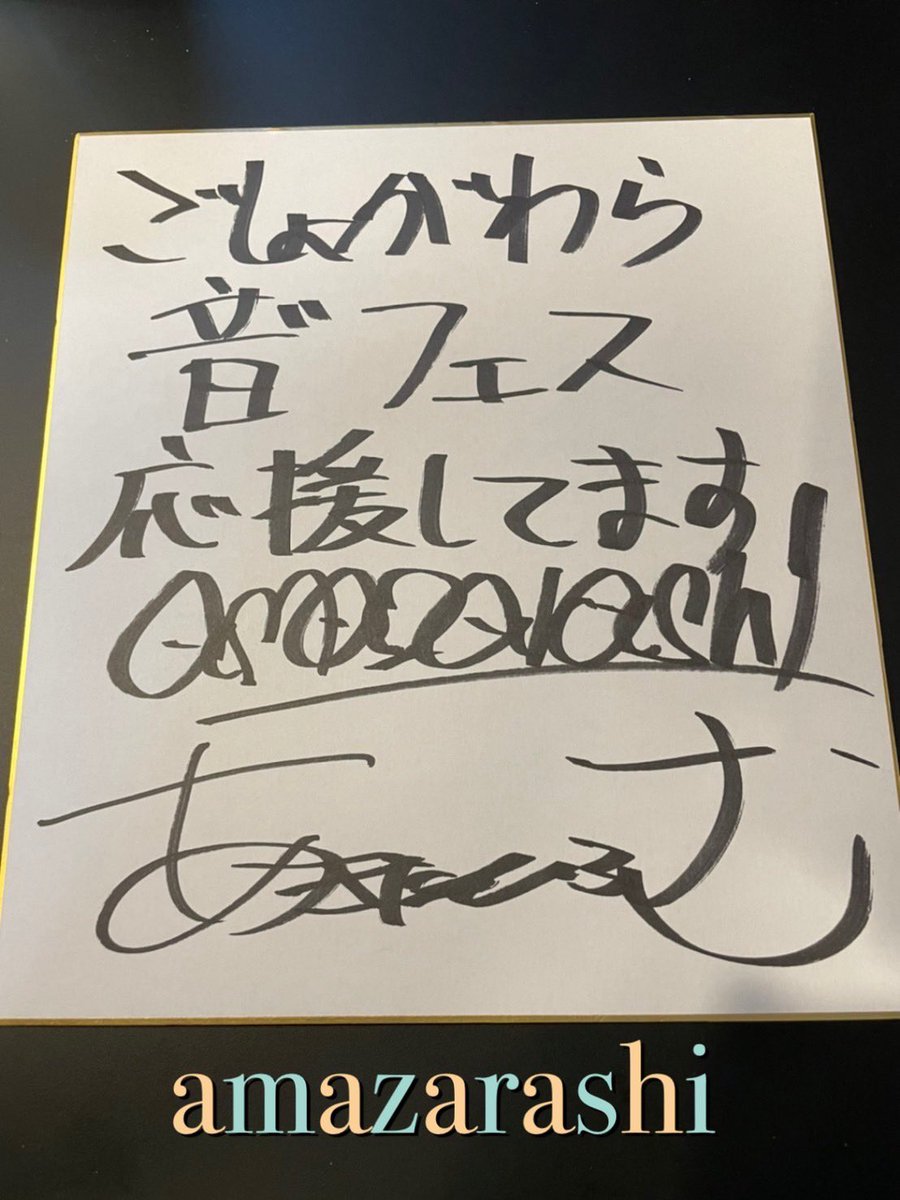 ごしょがわら
音フェス
応援してます
amazarashi
あきたひろむ
amazarashi